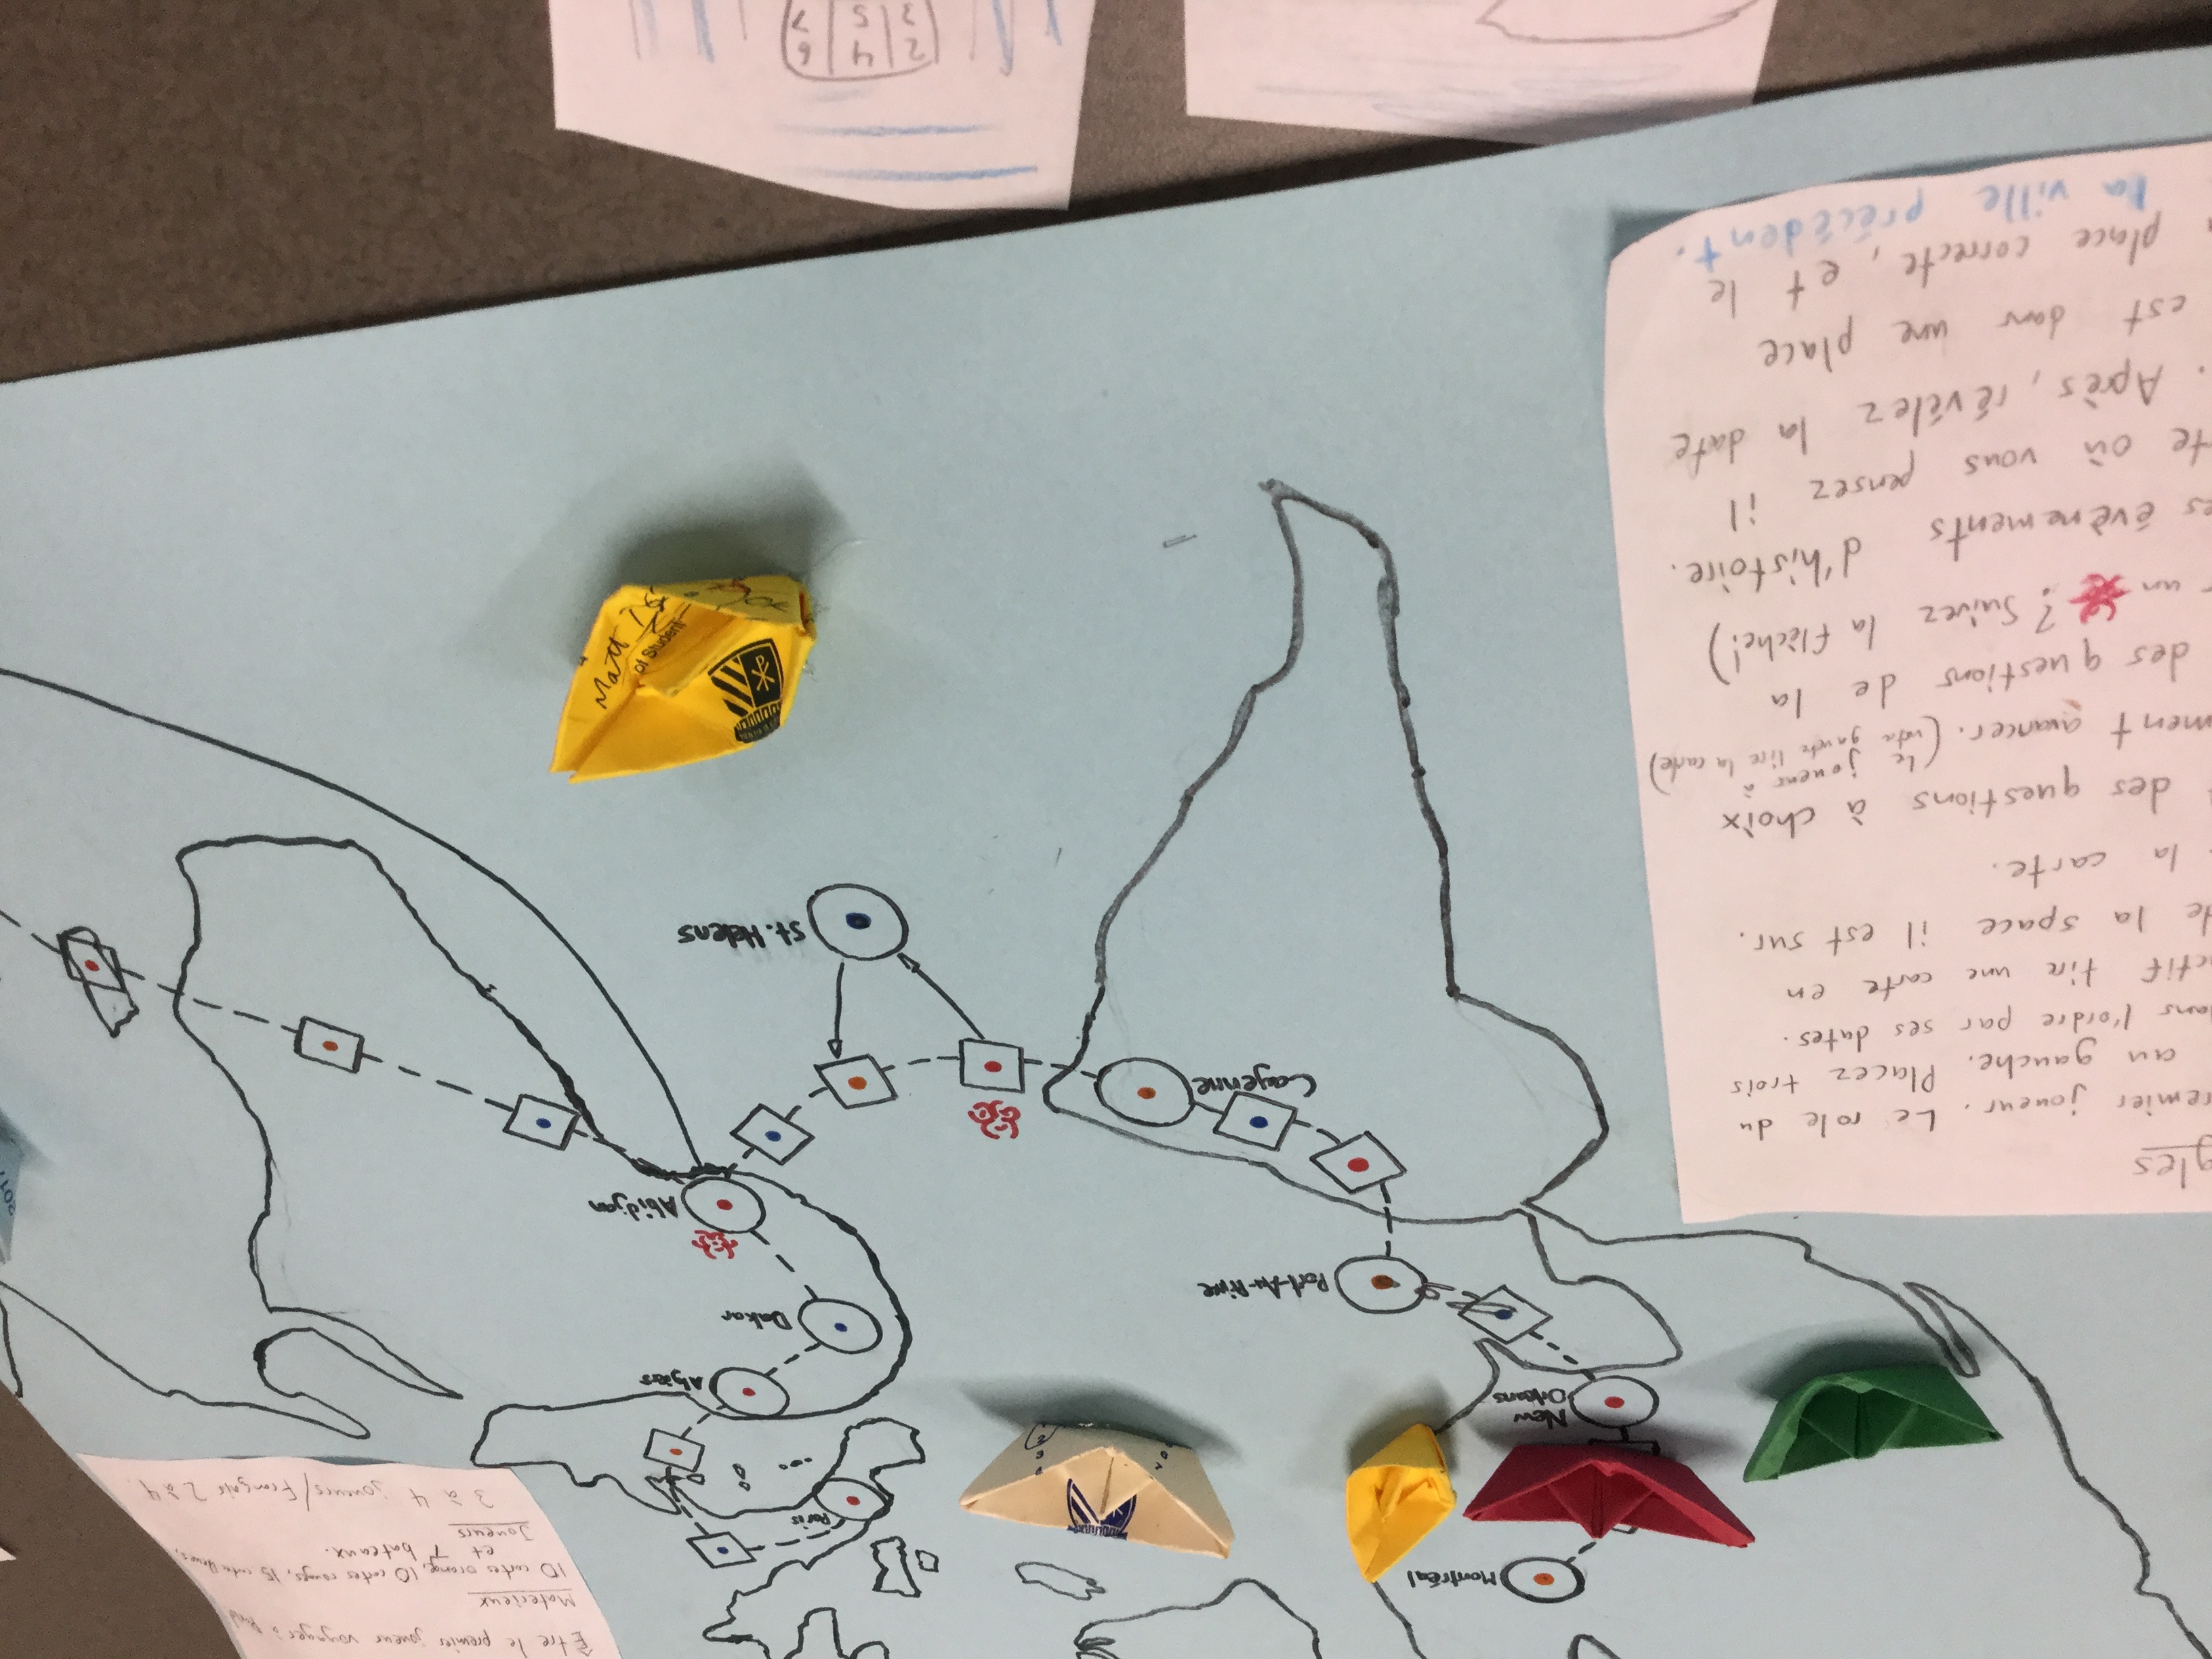 Être le premier joueur voyager à
Materieux
10 cartes orange, 10 cartes rouges, 15 cartes
et 7 bateaux.
Joueurs
3 à 4 joueurs/Français 2 à 4.
Montréal
New
Orleans
Port-Au-Prine
Cayenne
St. Helens
Paris
Algiers
Dakar
Abidjan
gles
remier joueur. Le role du
au gauche. Placez trois
dans l'ordre par ses dates.
actif tire une carte en
de la space il est sur.
la carte.
des questions à choix
ment avancer. (Le joueur à
votre gauche lire la carte)
des questions de la
un ? Suivez la flèche!)
es évènements d'histoire.
te où vous pensez il
. Après, révélez la date
est dans une place
place correcte, et le
la ville précédent.
ol Student
2 4 6
3 5 7